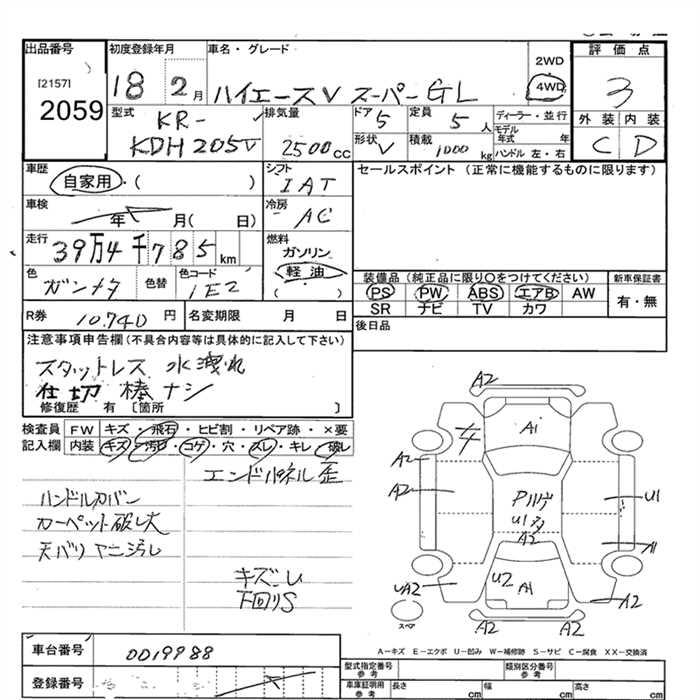 出品番号
[2157]
2059
初度登録年月
18 2月
車名・グレード
ハイエースV スーパーGL
2WD
4WD
評価点
3
外装 内装
C D
型式
KR-
KDH205V
排気量
2500cc
ドア 5
定員 5人
形状 V
積載 1000kg
ディーラー・並行
モデル年式 年
ハンドル 左・右
車歴
自家用・( )
シフト
IAT
セールスポイント (正常に機能するものに限ります)
車検
年 月( 日)
冷房
AC
走行
39万4千785km
燃料
ガソリン
軽油
( )
色
ガンメタ
色替
色コード
1E2
装備品 (純正品に限り○をつけてください)
PS PW ABS エアB AW
SR ナビ TV カワ
新車保証書
有・無
R券 10.740円
名変期限 月 日
後日品
注意事項申告欄(不具合内容等は具体的に記入して下さい)
スタットレス 水洩れ
仕切棒ナシ
修復歴 有 [箇所 ]
検査員記入欄
FW キズ・飛石・ヒビ割・リペア跡・×要
内装 キズ・汚れ・コゲ・穴・スレ・キレ・破レ
エンドパネル歪
ハンドルカバー
カーペット破レ大
天バリヤニ汚し
下回りS
A2
A1
A2
A2
U1
U1多
A2
A1
U2
A1
UA2
A2
A2
A2
スペア
A-キズ E-エクボ U-凹み W-補修跡 S-サビ C-腐食 XX-交換済
車台番号 0019988
登録番号
型式指定番号 参考
類別区分番号 参考
車庫証明用 参考
長さ cm
幅 cm
高さ cm